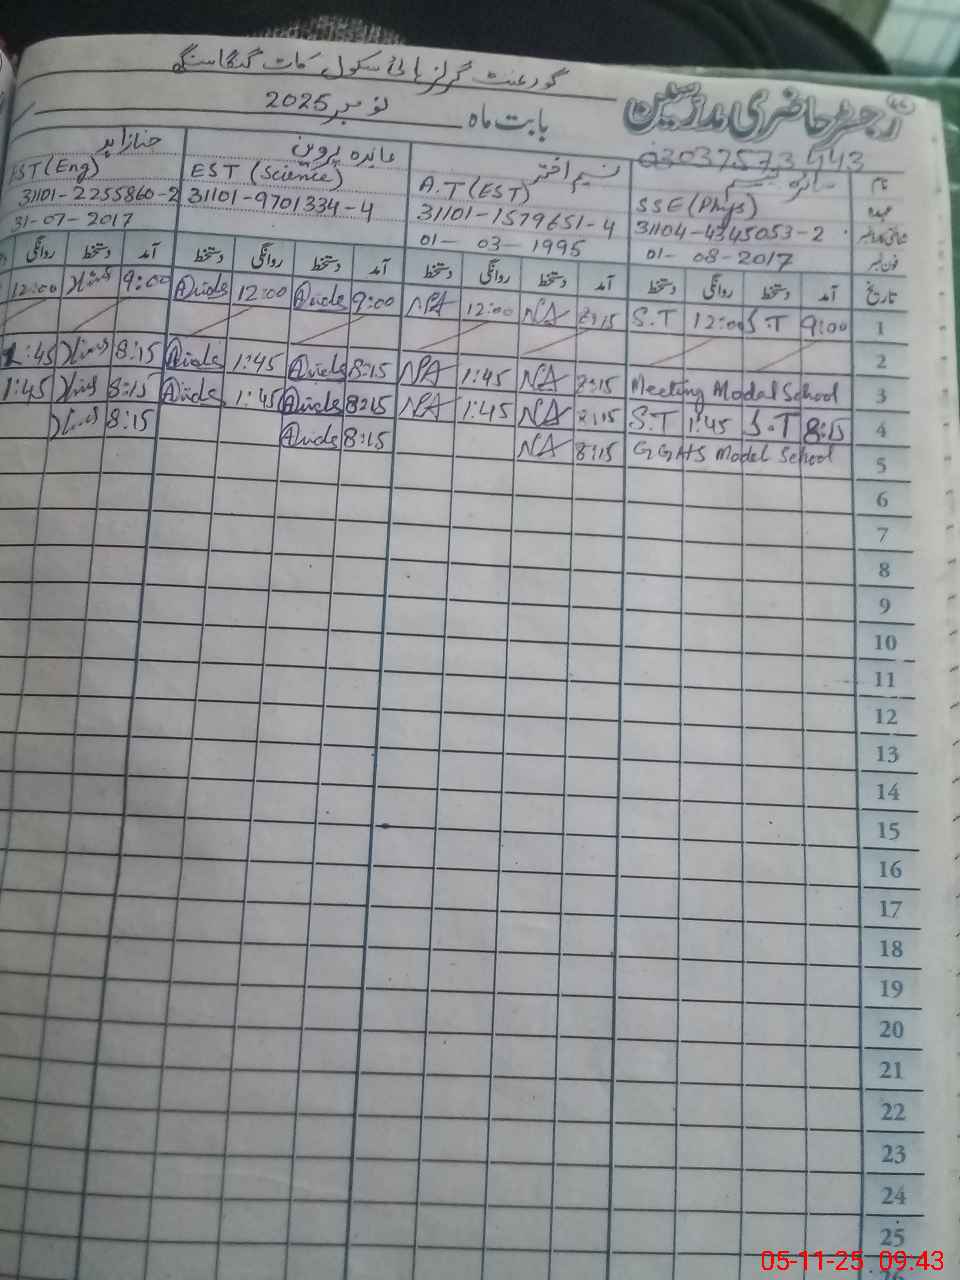 گورنمنٹ گرلز ہائی سکول
رجسٹر حاضری مدرسین بابت ماہ نومبر 2025
03037573443
نام نسیم اختر عابدہ پروین
عہدہ SSE (Phys) A.T (EST) EST (Science) EST (Eng)
31104-4345053-2 31101-1579651-4 31101-9701334-4 31101-2255860-2
01- 08-2017 01- 03-1995 31-07-2017
تاریخ آمد دستخط روانگی دستخط آمد دستخط روانگی دستخط آمد دستخط روانگی دستخط آمد دستخط روانگی
1 9:00 S.T 12:00 S.T 8:15 NA 12:00 NA 9:00 Aida 12:00 Aida 9:00 12:00
2
3 Meeting Modal School 8:15 NA 1:45 NA 8:15 Aida 1:45 Aida 8:15 1:45
4 8:15 S.T 1:45 S.T 8:15 NA 1:45 NA 8:15 Aida 1:45 Aida 8:15 1:45
5 GGHS Model School 8:15 NA 8:15 Aida 8:15
6
7
8
9
10
11
12
13
14
15
16
17
18
19
20
21
22
23
24
25
05-11-25 09:43